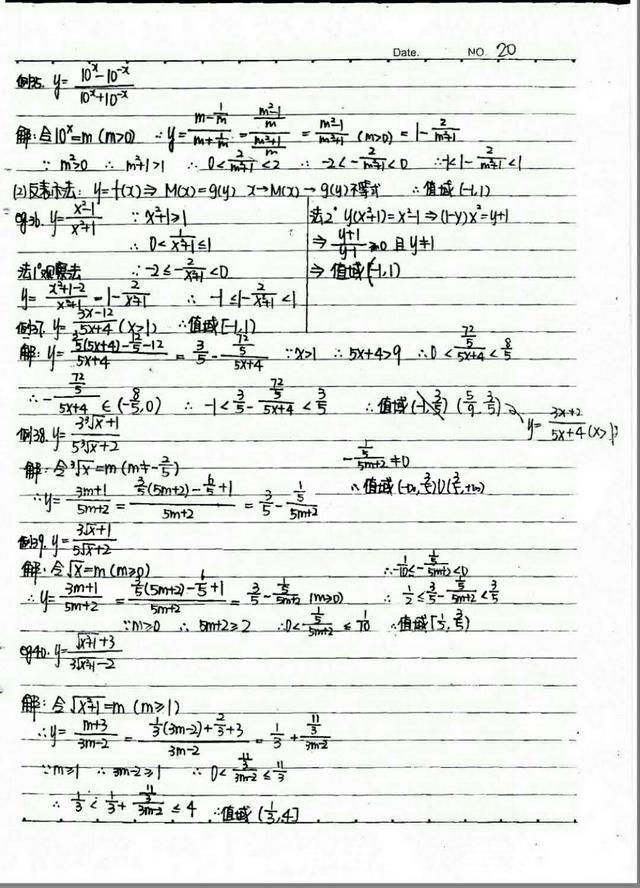 Date. NO. 20
例35. y = (10^x - 10^-x)/(10^x + 10^-x)
解: 令10^x = m (m>0) ∴ y = (m - 1/m)/(m + 1/m) = ((m²-1)/m)/((m²+1)/m) = (m²-1)/(m²+1) (m>0) = 1 - 2/(m²+1)
∵ m²>0 ∴ m²+1>1 ∴ 0 < 2/(m²+1) < 2 ∴ -2 < -2/(m²+1) < 0 ∴ -1 < 1 - 2/(m²+1) < 1
(2) 反表示法: y = f(x) ⇒ M(x) = g(y) x → M(x) → g(y) 不等式 ∴ 值域 (-1,1)
eg36. y = (x²-1)/(x²+1) ∵ x²+1≥1
∴ 0 < 1/(x²+1) ≤ 1
法1° 观察法 ∴ -2 ≤ -2/(x²+1) < 0
y = (x²+1-2)/(x²+1) = 1 - 2/(x²+1) ∴ -1 ≤ 1 - 2/(x²+1) < 1
∴ 值域 [-1,1)
法2° y(x²+1) = x²-1 ⇒ (1-y)x² = y+1
⇒ 值域 [-1,1)
例37. y = (3x-12)/(5x+4) (x>1)
解: y = (3/5(5x+4) - 12/5 - 12)/(5x+4) = 3/5 - (72/5)/(5x+4) ∵ x>1 ∴ 5x+4>9 ∴ 0 < (72/5)/(5x+4) < 8/5
∴ -(72/5)/(5x+4) ∈ (-8/5, 0) ∴ -1 < 3/5 - (72/5)/(5x+4) < 3/5 ∴ 值域 (-1, 3/5) (5/9, 3/5) → y = (3x+2)/(5x+4) (x>1)
例38. y = (3∛x+1)/(5∛x+2)
解: 令∛x = m (m≠-2/5) -(1/5)/(5m+2) ≠ 0
∴ y = (3m+1)/(5m+2) = (3/5(5m+2) - 6/5 + 1)/(5m+2) = 3/5 - (1/5)/(5m+2) ∴ 值域 (-∞, 3/5)∪(3/5, +∞)
例39. y = (3√x+1)/(5√x+2)
解: 令√x = m (m≥0) ∴ -1/10 ≤ -(1/5)/(5m+2) < 0
∴ y = (3m+1)/(5m+2) = (3/5(5m+2) - 6/5 + 1)/(5m+2) = 3/5 - (1/5)/(5m+2) (m≥0) ∴ 1/2 ≤ 3/5 - (1/5)/(5m+2) < 3/5
∵ m≥0 ∴ 5m+2≥2 ∴ 0 < (1/5)/(5m+2) ≤ 1/10 ∴ 值域 [1/2, 3/5)
eg40. y = (√(x²+1)+3)/(3√(x²+1)-2)
解: 令√(x²+1) = m (m≥1)
∴ y = (m+3)/(3m-2) = (1/3(3m-2) + 2/3 + 3)/(3m-2) = 1/3 + (11/3)/(3m-2)
∵ m≥1 ∴ 3m-2≥1 ∴ 0 < (11/3)/(3m-2) ≤ 11/3
∴ 1/3 < 1/3 + (11/3)/(3m-2) ≤ 4 ∴ 值域 (1/3, 4]